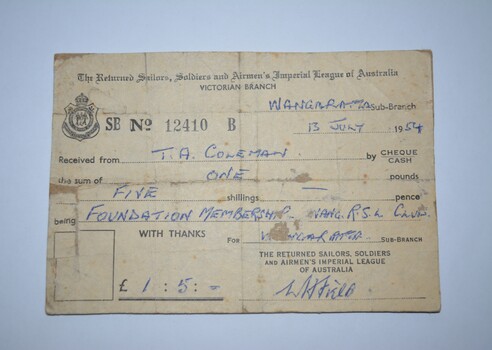 The Returned Sailors, Soldiers and Airmen's Imperial League of Australia
VICTORIAN BRANCH
WANGARATTA Sub-Branch
SB No 12410 B
13 JULY 1954
Received from T.A. COLEMAN. by CHEQUE
CASH
the sum of ONE pounds
FIVE shillings — pence
being FOUNDATION MEMBERSHIP. WANG. R.S.L CLUB.
WITH THANKS
For WANGARATTA SUB-BRANCH
THE RETURNED SAILORS, SOLDIERS
AND AIRMEN'S IMPERIAL LEAGUE
OF AUSTRALIA
£ 1 : 5 : -